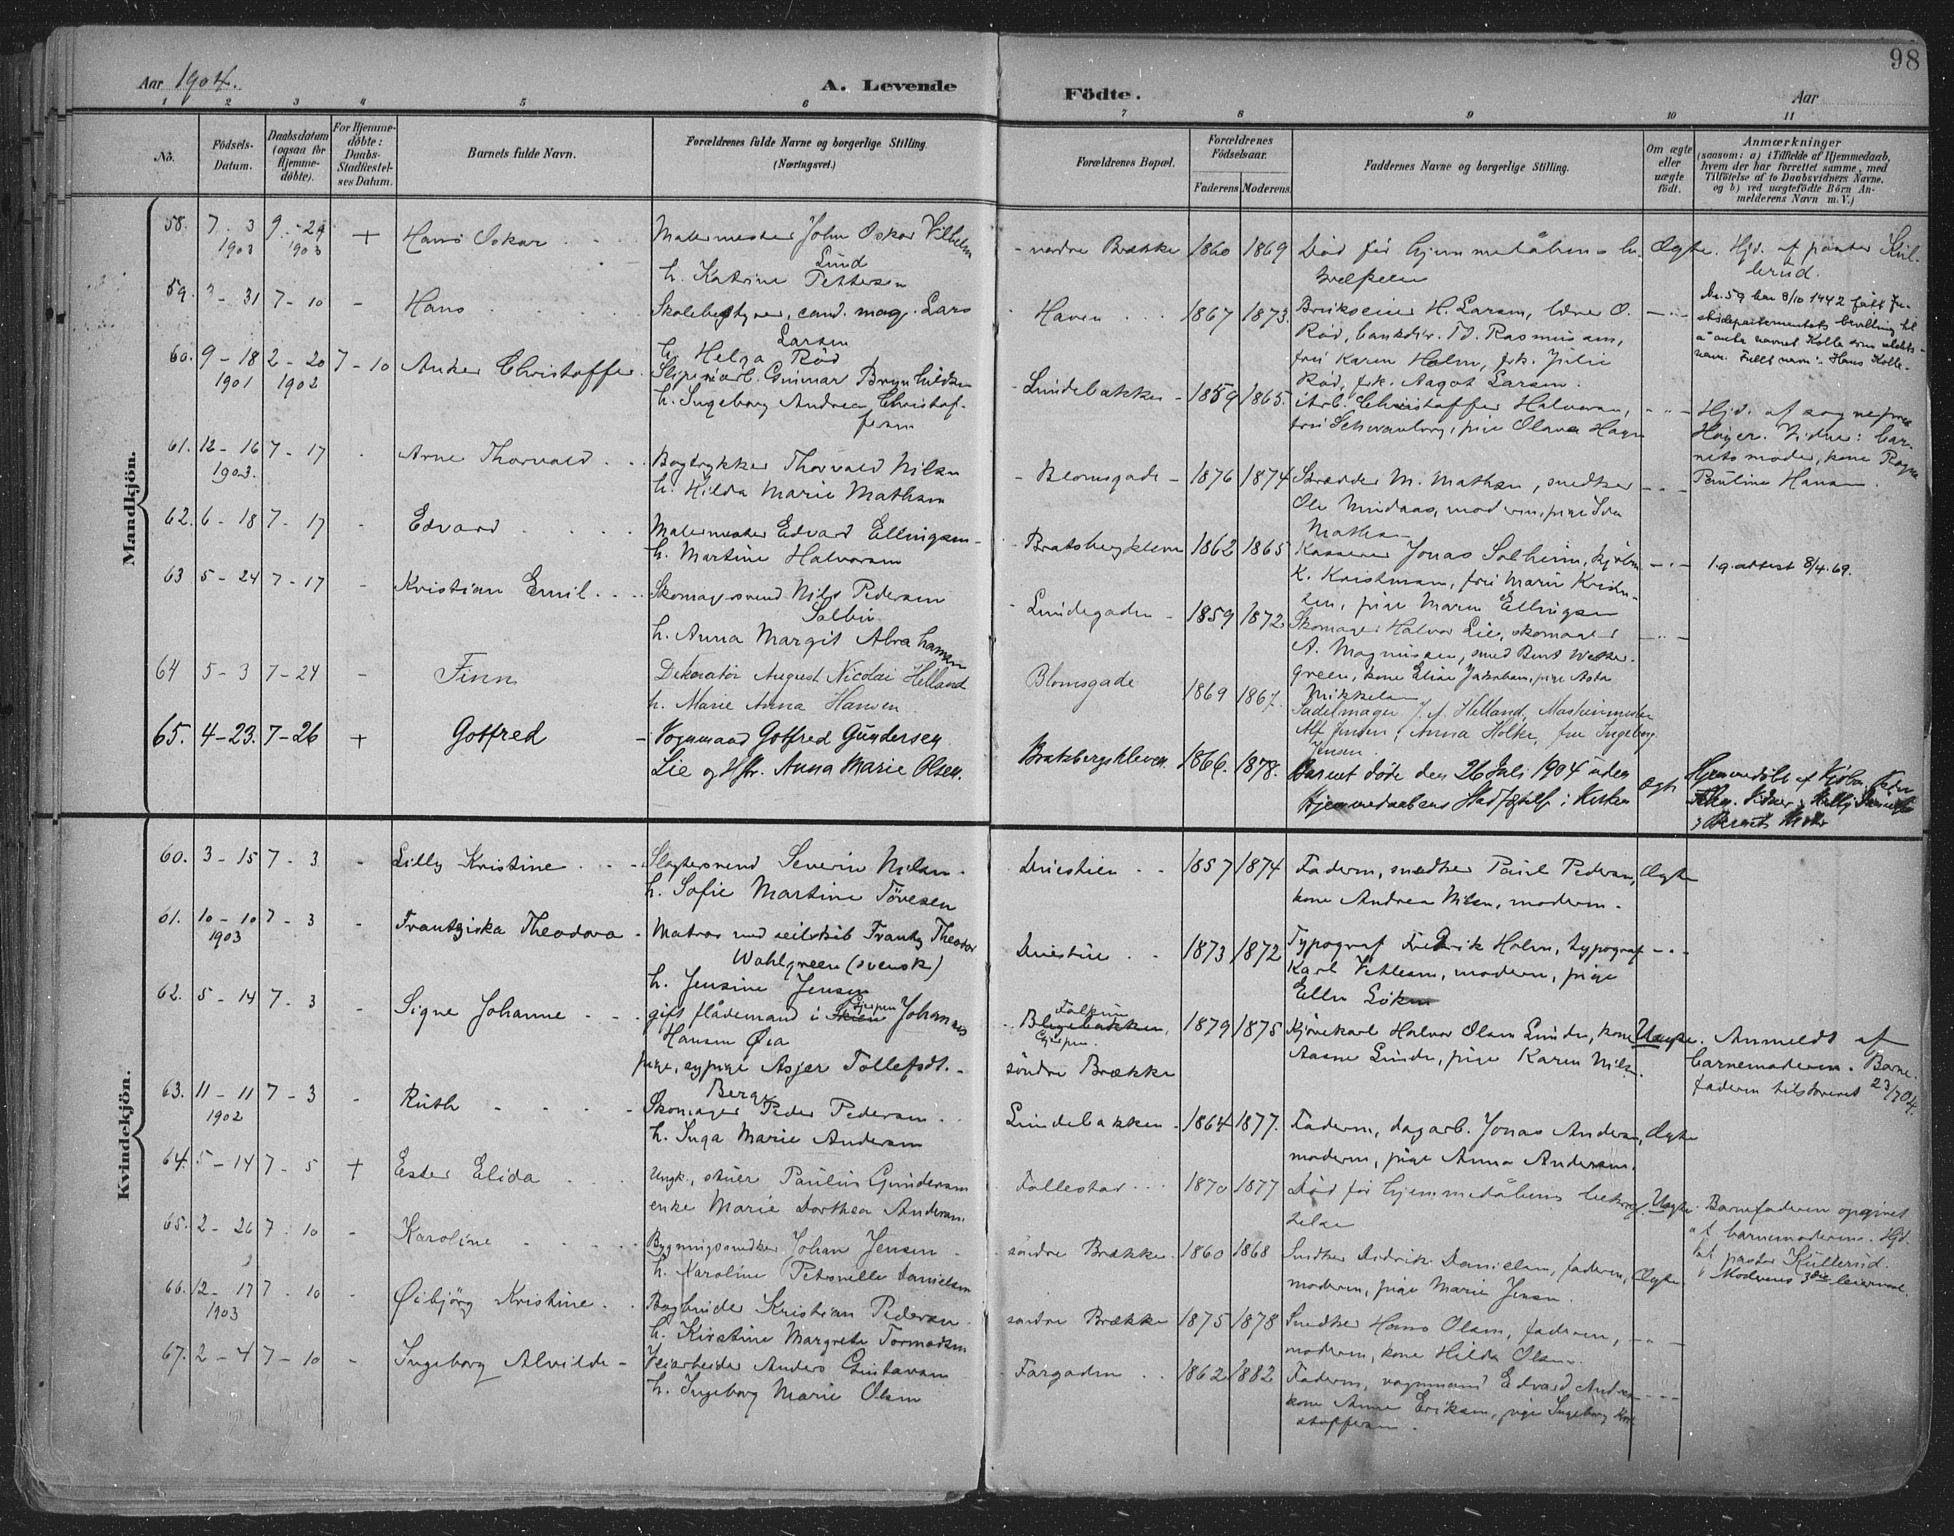 98
Aar 1904.
A. Levende
Födte.
Aar
1 2 3 4 5 6 7 8 9 10 11
No.
Födsels-
Datum.
Daabsdatum
(ogsaa for
Hjemme-
döbte).
For Hjemme-
döbte:
Daabs-
Stadfæstel-
ses Datum.
Barnets fulde Navn.
Forældrenes fulde Navne og borgerlige Stilling
(Næringsvei.)
Forældrenes Bopæl.
Forældrenes
Födselsaar.
Faderens Moderens.
Faddernes Navne og borgerlige Stilling.
Om ægte
eller
uægte
födt.
Anmærkninger
(saasom: a) i Tilfælde af Hjemmedaab,
hvem der har forrettet samme, med
Tilföielse af to Daabsvidners Navne.
og b) ved uægtefödte Börn An-
melderens Navn m. V.)
Mandkjön.
58. 7 - 3 9 - 29 + Hans Oskar Malermester John Oskar Vilhelm nordre Brække 1860 1869 Død før hjemmedåbens Ægte. Hjd. af pastor
1903 1903 Lund
h. Katrine Pettersen
59. 7 - 10 - Hans Skolebestyrer, cand. mag. Lars Haven 1867 1873. H. Larsen, O.
Larsen Rød, bankdir. Th. Rasmussen,
h. Helga Rød frú Karen Holm, frk. Julie
Rød, frk. Aagot Larsen.
Nr. 59 har 8/10 1942 fått Ju-
stisdepartementets bevilling til
å anta navnet Kolle som slekts-
navn. Fullt navn: Hans Kolle.
60. 9 - 18 2 - 20 7 - 10 Anker Christoffer Sliperiarb. Gunnar Brynhildsen Lundebakken 1859 1865. Arb. Christoffer Halvorsen,
1901 1902 h. Ingeborg Andrea Christof-
fersen
frú Schwanborg, pige Olava Hagen
Hjd. af sognepr.
Høyer. Vidne: bar-
nets moder, kone Ragna
Pauline Hansen.
61. 12 - 16 7 - 17 - Arne Thorvald Bogtrykker Thorvald Nilsen Blomsgade 1876 1874 Skrædder M. Mathsen, snedker
1903. h. Hilda Marie Mathsen Ole Mindaas, moderen, pige
Mathsen
62. 6 - 18 7 - 17 - Edvard Malermester Edvard Ellingsen Bratsbergkleven 1862 1865 Kasserer Jonas Solheim, kjøbm.
h. Martine Halvorsen K. Kristensen, frú Marie Kristen-
sen, pige Maren Ellingsen
1 g. attest 8/4.69.
63 5 - 24 7 - 17 - Kristian Emil Skomagersvend Nils Pedersen Lundegaden 1859 1872 Skomager Halvor Lie, skomager
h. Anna Margit Abrahamsen A. Magnussen, smed Bernt Wetter-
green, kone Elise Jakobsen, pige Asta
Mikkelsen
64 5 - 3 7 - 24 - Finn Dekoratør August Nicolai Helland Blomsgade 1869 1867. Sadelmager J. A. Helland, Maskinmester
h. Marie Anna Hansen. Alf Jensen, Anna Holte, fru Ingeborg
Jensen.
65. 4 - 23. 7 - 26 + Gotfred Vognmand Gotfred Gundersen Bratsbergkleven 1866. 1878. Barnet døde den 26 Juli 1904 uden
Lie og Hstr. Anna Marie Olsen. Hjemmedaabens Stadfæstelse i Kirken Ægte
Hjemmedøbt af
Barnets Moder
Kvindekjön.
60. 3 - 15 7 - 3 - Lilly Kristine Slagtersvend Severin Nilsen Duestien 1857 1874 Faderen, snedker Paul Pedersen, Ægte
h. Sofie Martine Tövesen kone Andrea Nilsen, moderen.
61. 10 - 10 7 - 3 - Frantziska Theodora Matros med seilskib Frantz Theodor Duestien 1873 1872 Typograf Fredrik Holm, typograf
1903 Wahlgreen (svensk) Karl Vetlesen, moderen, pige
h. Jensine Jensen Ellen
62. 5 - 14 7 - 3 - Signe Johanne gift flådemand i Skien Gjerpen Johannes Falkum 1879 1875 Kjørekarl Halvor Olsen Lunde, kone Uægte. Anmeldt af
Hansen Øia Gjerpen. Aasne Lunde, pige Karen Nils. barnemoderen. Barne-
pige, sypige Asjer Tollefsdt. söndre Brække faderen tilskrevet 23/7 04.
Berge
63. 11 - 11 7 - 3 - Ruth Skomager Peder Pedersen Lundebakken 1864 1877. Faderen, dagarb. Jonas Andersen, Ægte
1902 h. Inga Marie Andersen moderen, pige Anna Andersen.
64. 5 - 14 7 - 5 + Ester Elida Ungk., stuer Paulus Gundersen Follestad 1870 1877 Död før hjemmedåbens bekræf- Uægte. Barnefaderen opgivet
enke Marie Dorthea Andersen. telse af barnemoderen. Hjd.
af pastor Kullerud.
Moderens 3die leiermaal.
65. 2 - 26 7 - 10 - Karoline Bygningssnedker Johan Jensen söndre Brække 1860 1868 Snedker Andrik Danielsen, faderen, Ægte
h. Karoline Petronelle Danielsen moderen, pige Marie Jensen.
66. 12 - 17 7 - 10 - Øibjörg Kristine Bogbinder Kristian Pedersen söndre Brække 1875 1878 Snedker Hans Olsen, faderen,
1903 h. Kirstine Margrete Tormodsen moderen, kone Hilda Olsen.
67. 2 - 4 7 - 10 - Ingeborg Alvilde Veiarbeider Anders Gustavsen Fargaden 1862 1882 Faderen, vognmand Edvard Andersen
h. Ingeborg Marie Olsen kone Anne Eriksen, pige Ingeborg Kri-
stoffersen.